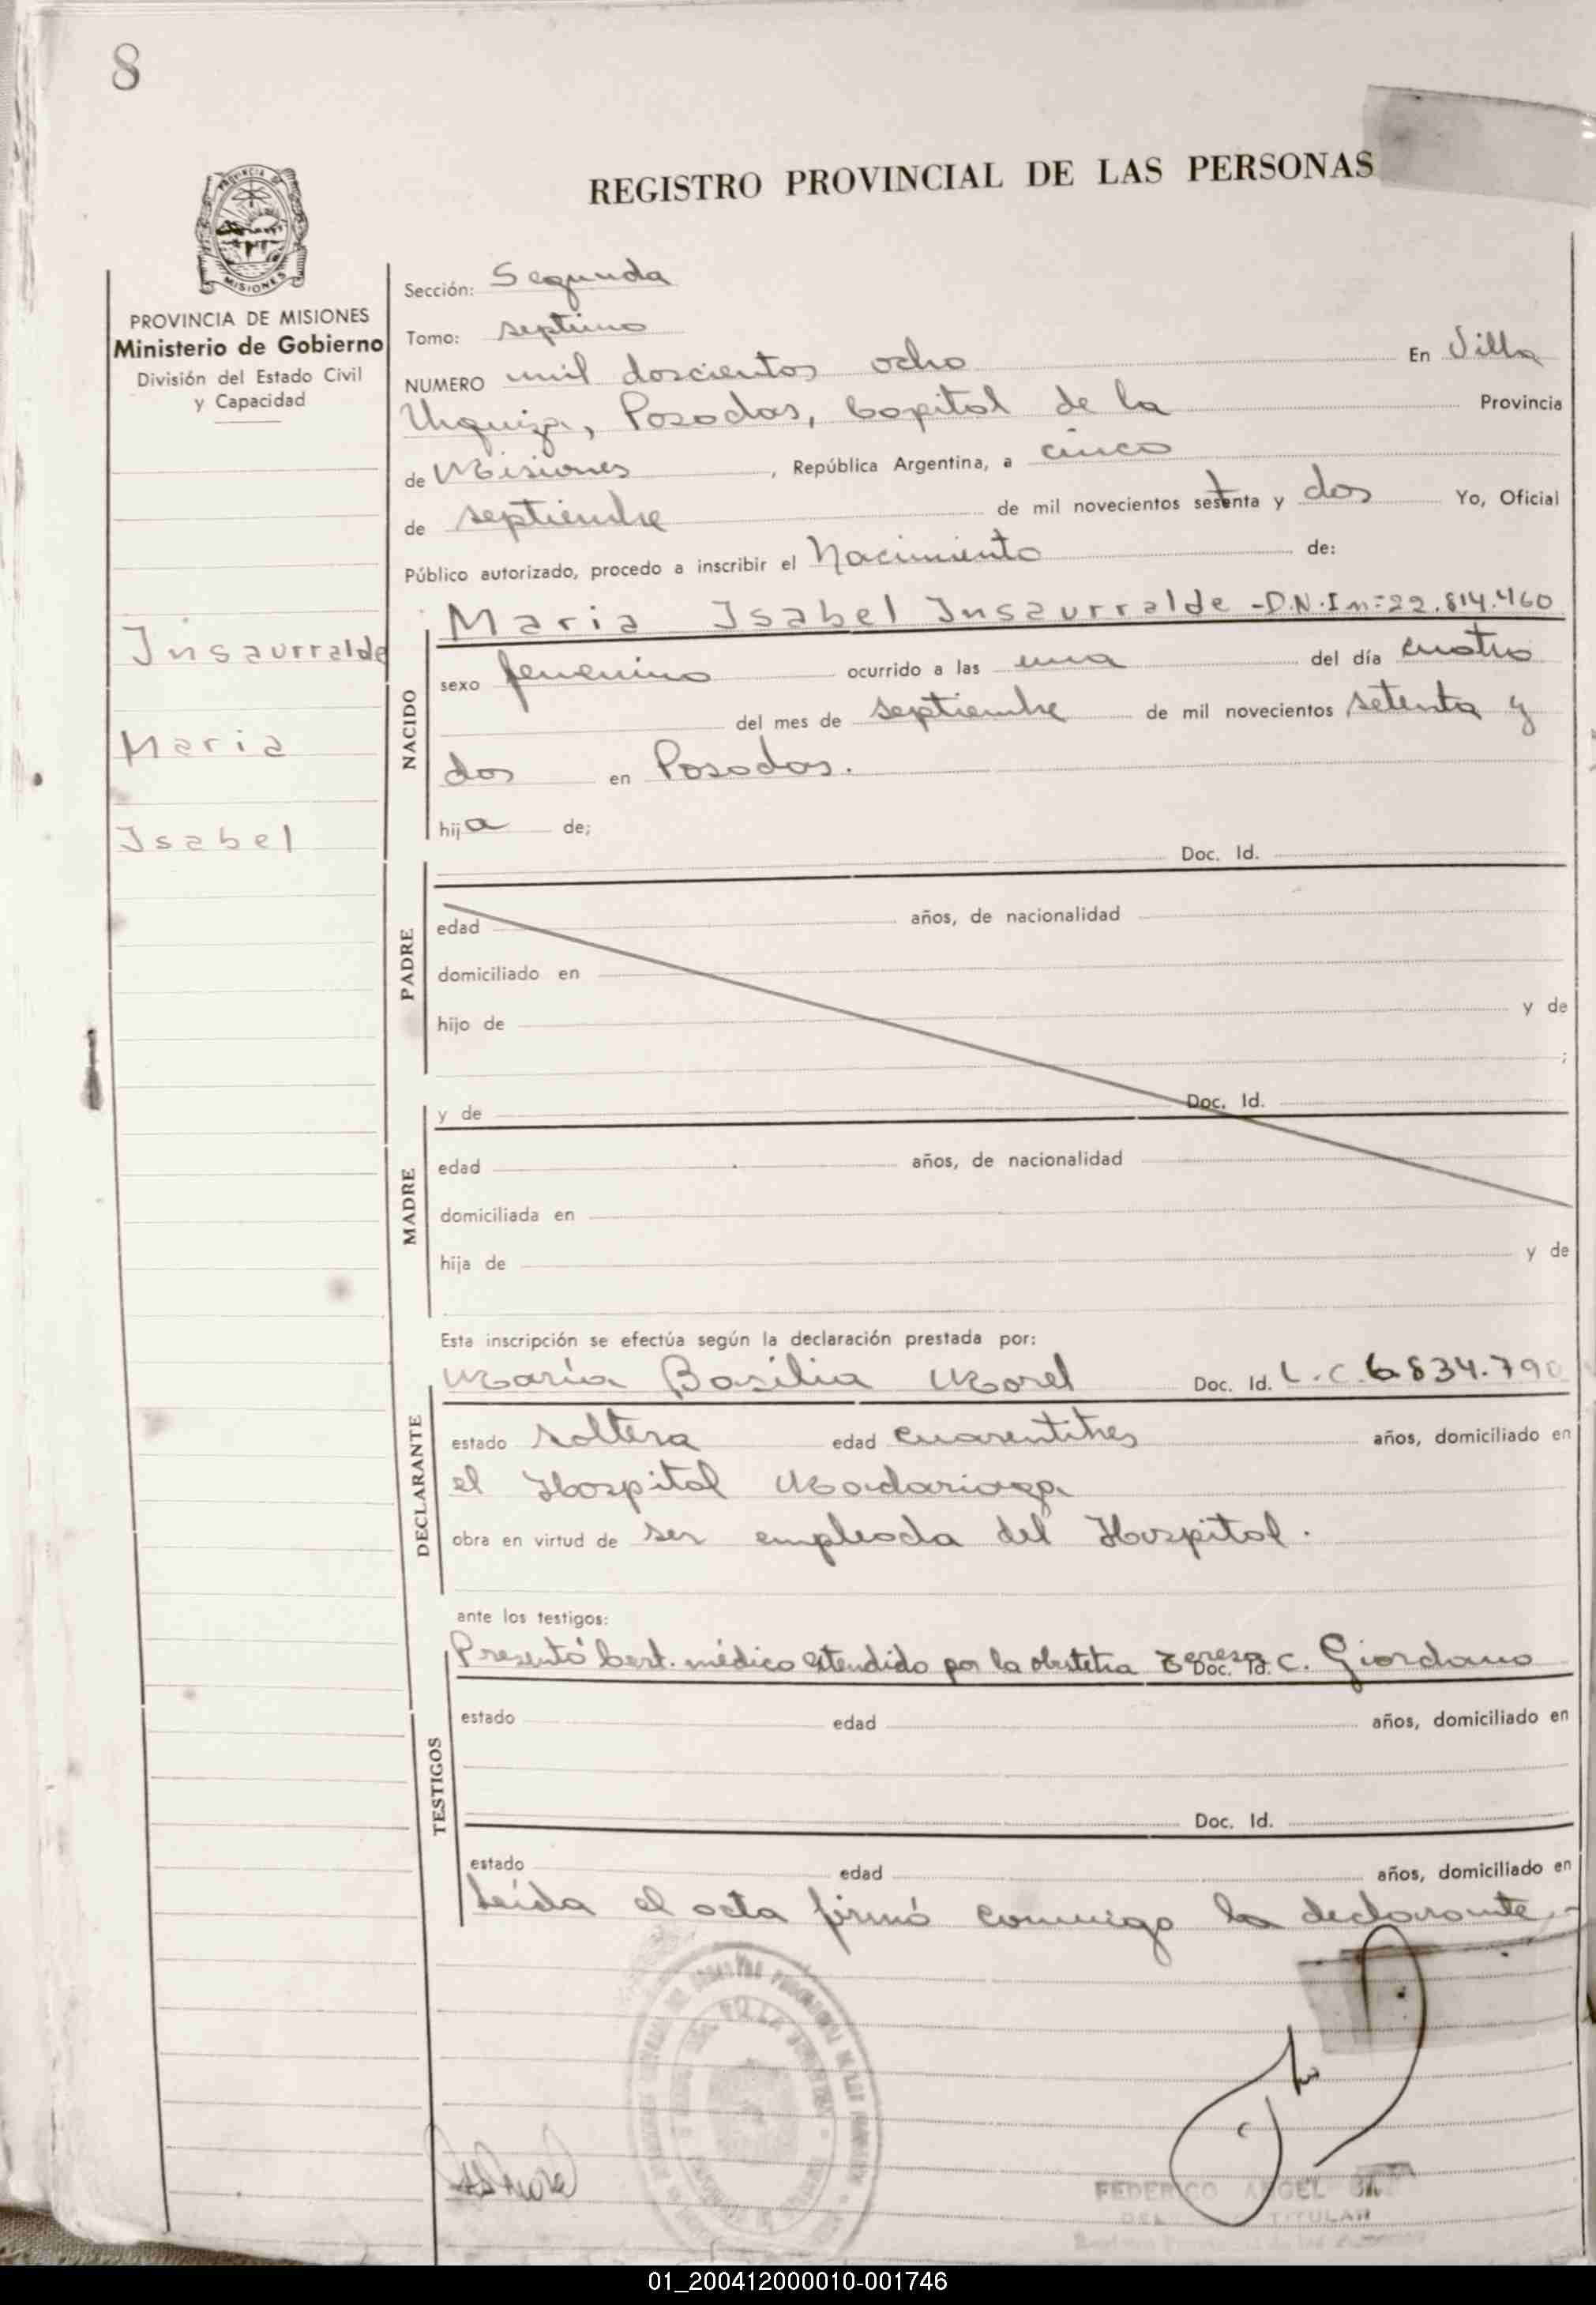 8
REGISTRO PROVINCIAL DE LAS PERSONAS
MISIONES
PROVINCIA DE MISIONES
Ministerio de Gobierno
División del Estado Civil
y Capacidad
Insaurralde
Maria
Isabel
Sección: Segunda
Tomo: septimo
NUMERO mil doscientos ocho En Villa
Urquiza, Posadas, Capital de la Provincia
de Misiones, República Argentina, a cinco
de septiembre de mil novecientos setenta y dos Yo, Oficial
Público autorizado, procedo a inscribir el Nacimiento de:
NACIDO
Maria Isabel Insaurralde - D.N.I n= 22.814.460
sexo femenino ocurrido a las una del día cuatro
del mes de septiembre de mil novecientos setenta y
dos en Posadas.
hija de;
PADRE
Doc. Id.
edad años, de nacionalidad
domiciliado en
hijo de y de
;
MADRE
y de Doc. Id.
edad años, de nacionalidad
domiciliada en
hija de y de
Esta inscripción se efectúa según la declaración prestada por:
DECLARANTE
María Basilia Morel Doc. Id. L.C. 6.834.790
estado soltera edad cuarentitres años, domiciliado en
el Hospital Madariaga
obra en virtud de ser empleada del Hospital.
ante los testigos:
TESTIGOS
Presentó Cert. médico extendido por la obstetra Teresa C. Giordano
Doc. Id.
estado edad años, domiciliado en
Doc. Id.
estado edad años, domiciliado en
Leída el acta firmó conmigo la declarante.-
FEDERICO ANGEL
TITULAR
01_200412000010-001746